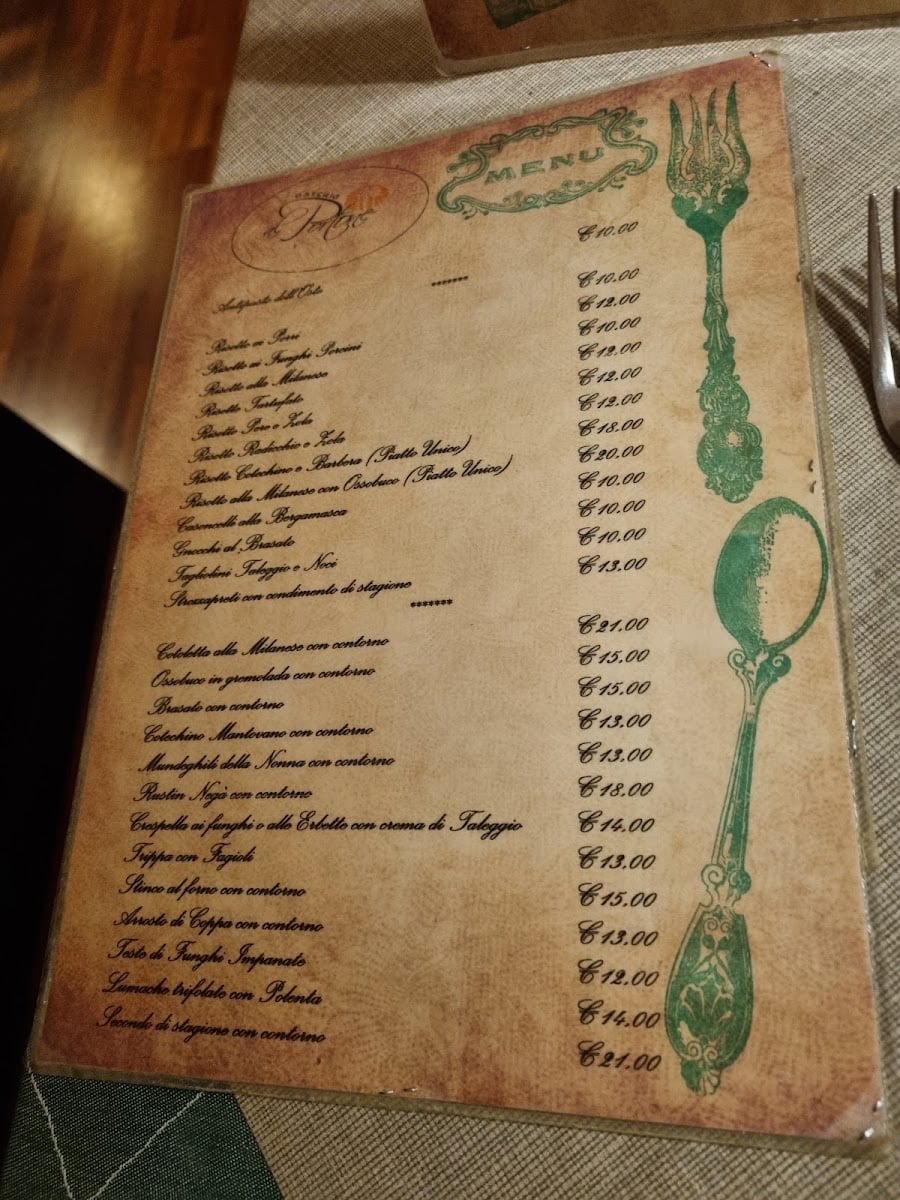 OSTERIA
MENU
Antipasto dell'Oste €10.00
*******
Risotto ai Porri €10.00
Risotto ai Funghi Porcini €12.00
Risotto alla Milanese €10.00
Risotto Tartufato €12.00
Risotto Pere e Zola €12.00
Risotto Radicchio e Zola €12.00
Risotto Cotechino e Barbera (Piatto Unico) €18.00
Risotto alla Milanese con Ossobuco (Piatto Unico) €20.00
Casoncelli alla Bergamasca €10.00
Gnocchi al Brasato €10.00
Tagliolini Taleggio e Noci €10.00
Strozzapreti con condimento di stagione €13.00
*******
Cotoletta alla Milanese con contorno €21.00
Ossobuco in gremolada con contorno €15.00
Brasato con contorno €15.00
Cotechino Mantovano con contorno €13.00
Mundeghili della Nonna con contorno €13.00
Rustin Negà con contorno €18.00
Crespella ai funghi o alle Erbette con crema di Taleggio €14.00
Trippa con Fagioli €13.00
Stinco al forno con contorno €15.00
Arrosto di Coppa con contorno €13.00
Teste di Funghi Impanate €12.00
Lumache trifolate con Polenta €14.00
Secondo di stagione con contorno €21.00